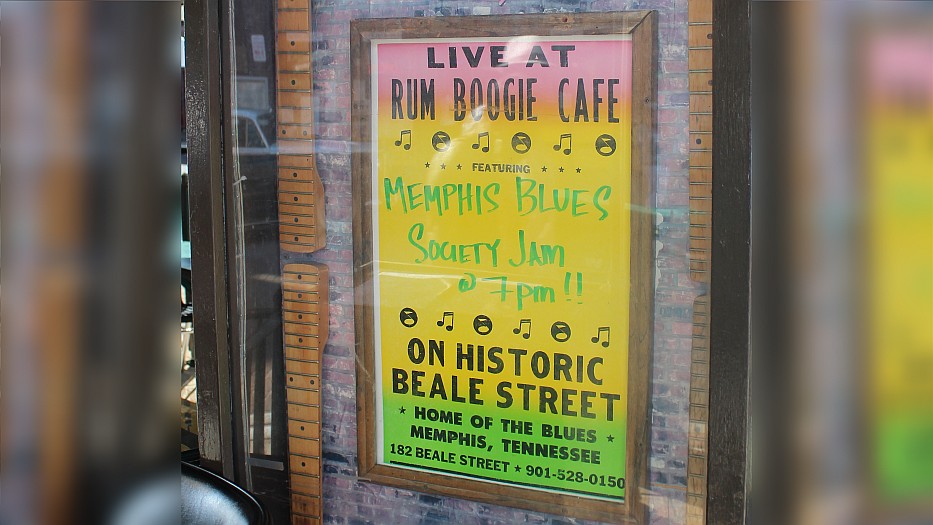 LIVE AT
RUM BOOGIE CAFE
FEATURING
MEMPHIS BLUES
SOCIETY JAM
@ 7pm!!
ON HISTORIC
BEALE STREET
HOME OF THE BLUES
MEMPHIS, TENNESSEE
182 BEALE STREET ★ 901-528-0150